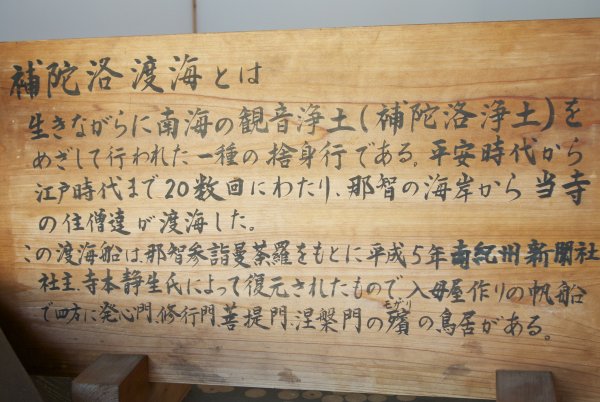 補陀洛渡海とは
生きながらに南海の観音浄土(補陀洛浄土)を
めざして行われた一種の捨身行である。平安時代から
江戸時代まで20数回にわたり、那智の海岸から当寺
の住僧達が渡海した。
この渡海船は、那智参詣曼荼羅をもとに平成5年南紀州新聞社
社主、寺本静生氏によって復元されたもので、入母屋作りの帆船
で四方に発心門、修行門、菩提門、涅槃門の殯の鳥居がある。
モガリ